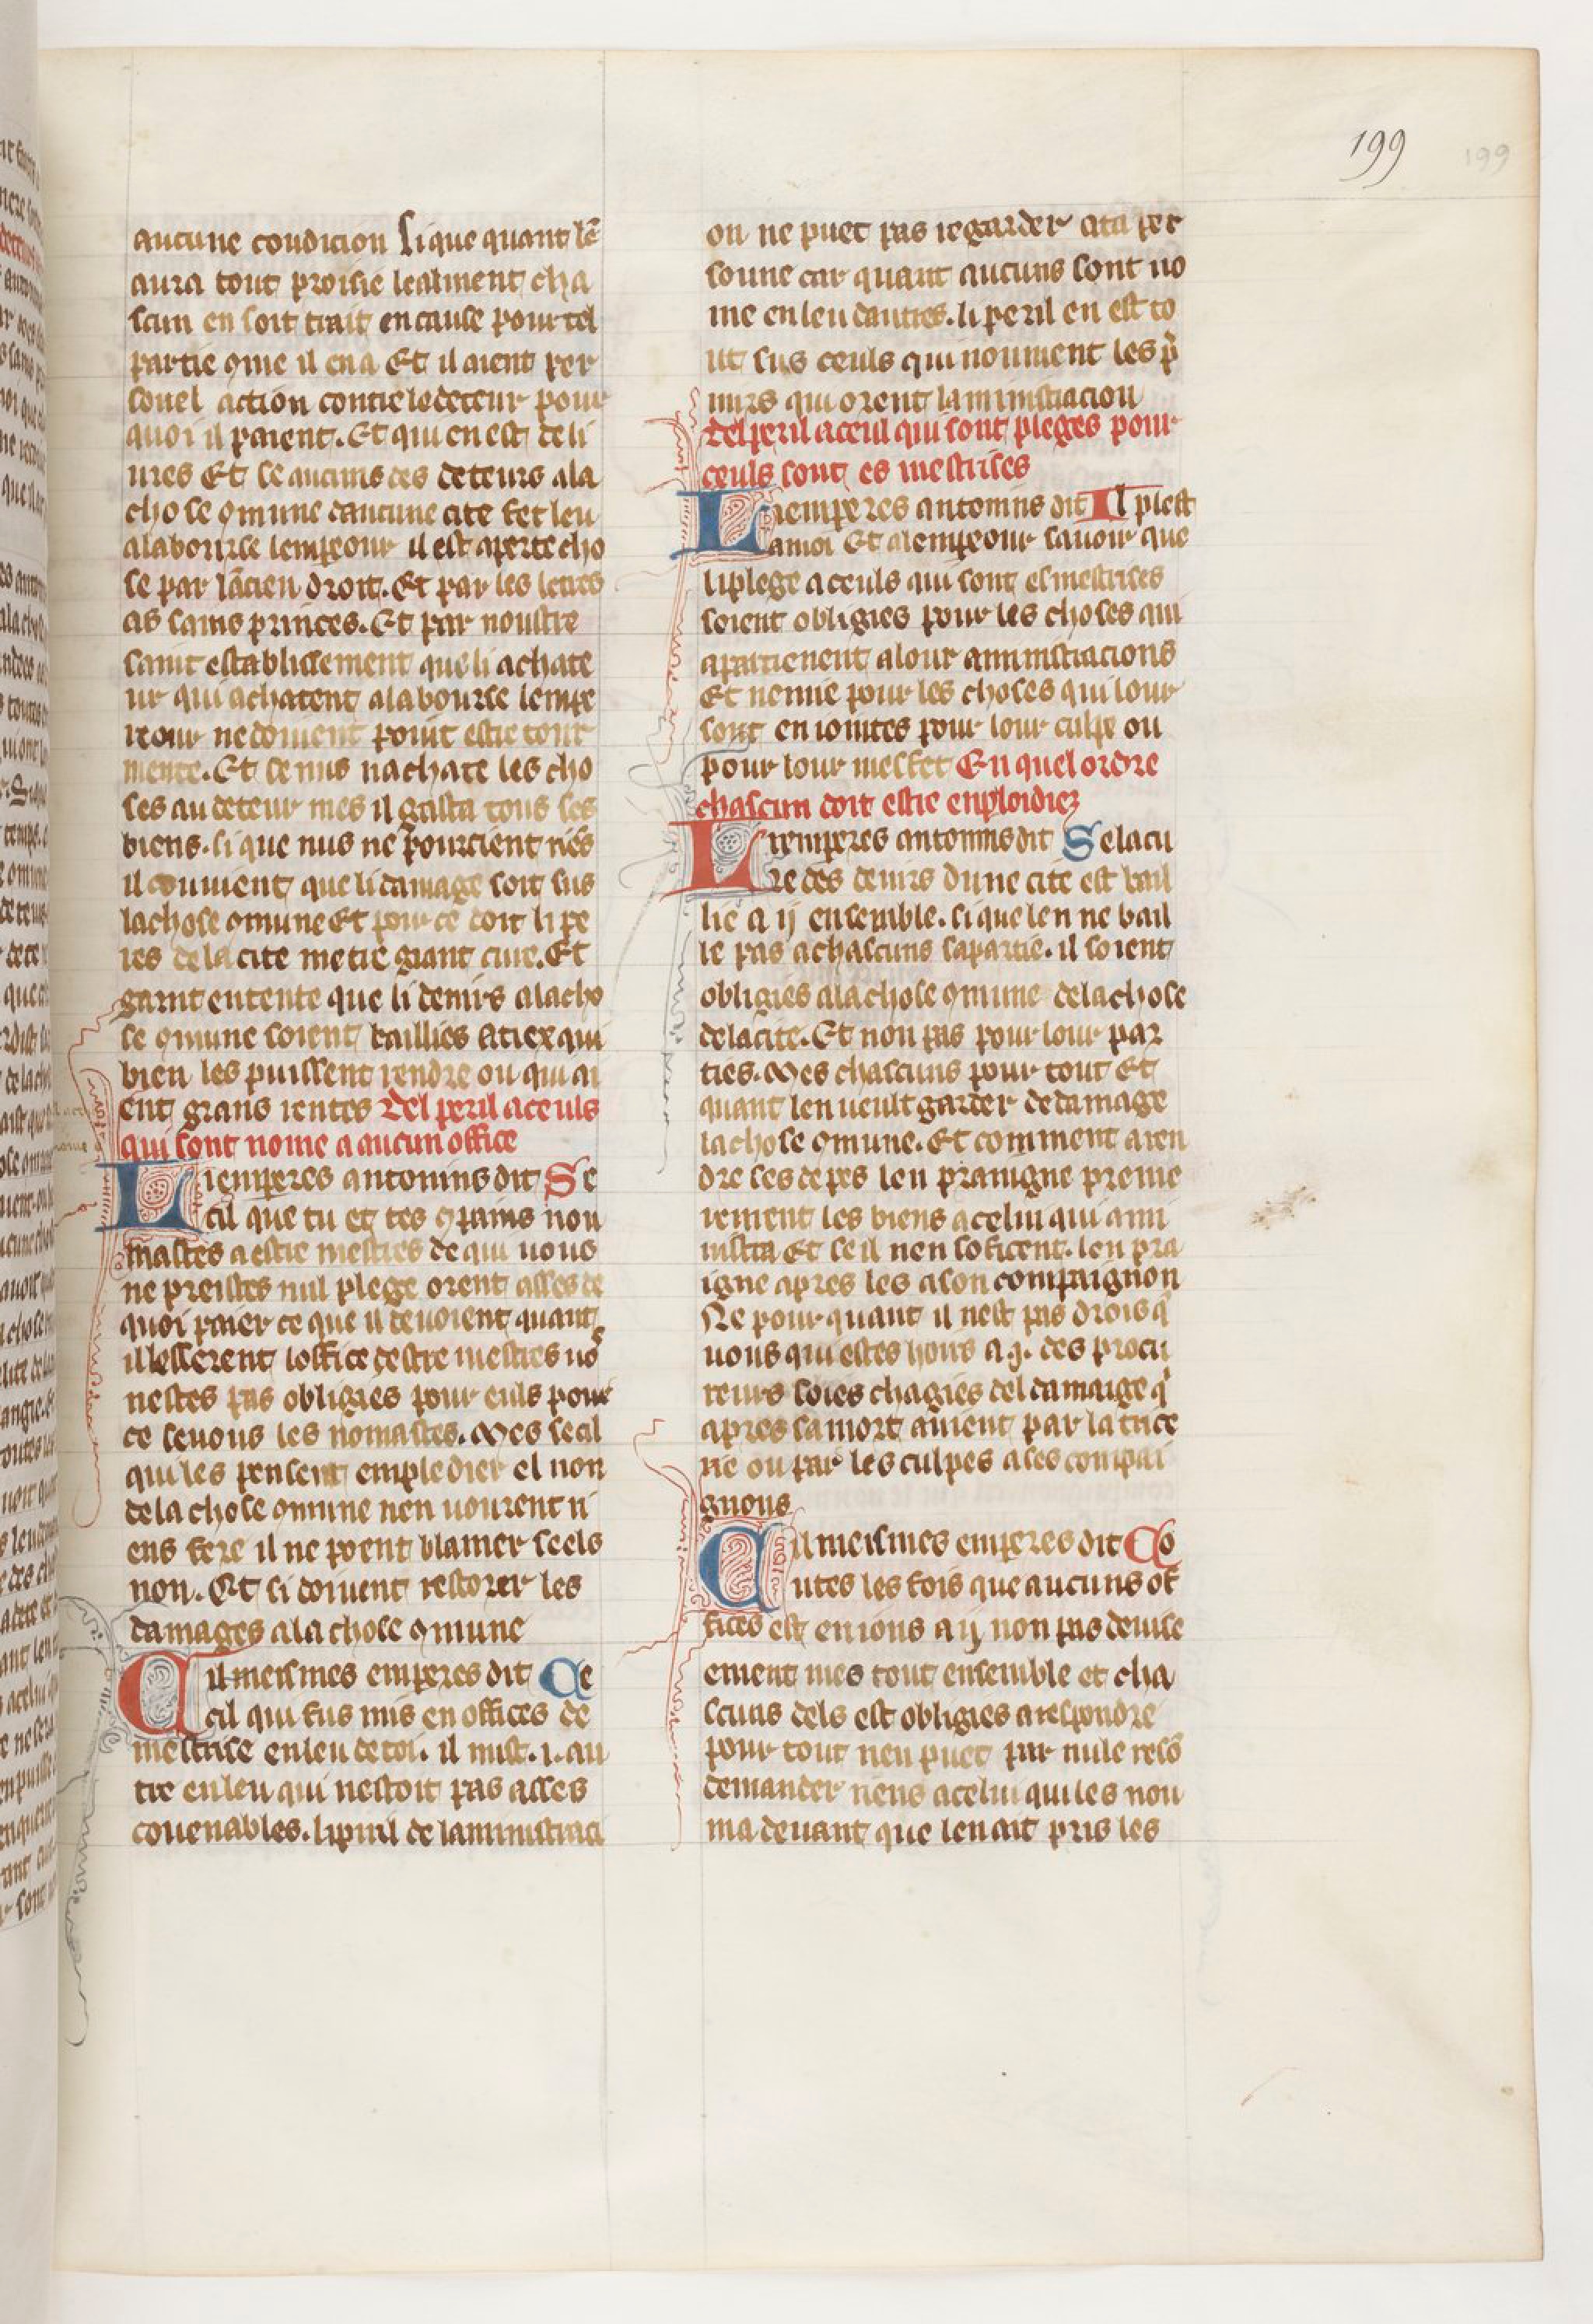 199
199
aucune condicion si que quant lē
aura tout proisie lealment cha
scun en soit trait en cause pour tel
partie ꝯme il en a Et il aient per
sonel action contre le deteur pour
quoi il paient. Et qui en est deli
ures Et se aucuns des deteurs a la
chose ꝯmune daucune cite fet leu
a la bourse lempeour il est aperte cho
se par lācien droit. Et par les letres
as sains princes. Et par noustre
saint establissement que li achate
ur qui achatent a la bourse lempe
reour ne doiuent point estre tour
mente. Et se nus nachate les cho
ses au deteur mes il gasta tous ses
biens. si que nus ne pourcient niēs
il couuient que li damage soit sus
la chose ꝯmune Et pour ce doit li pe
res de la cite metre grant cure. Et
garnt entente que li denirs a la cho
se ꝯmune soient bailliés a tiex qui
bien les puissent rendre ou qui ai
ent grans rentes Del peril a ceuls
qui sont nome a aucun office
Li emperes antonins dit Se
cil que tu et tes ꝯpains nou
mastes a estre mestres de qui uous
ne preistes nul plege orent asses de
quoi paier ce que il deuoient quant
il lesserent loffice destre mestres uo
nestes pas obligies pour euls pour
ce se uous les nomastes. Mes se cil
qui les pensent empledier el non
de la chose ꝯmune nen uourent ri
ens fere il ne poent blamer se els
non. Et si doiuent restorer les
damages a la chose ꝯmune
Cil meismes emperes dit Se
cil qui fus mis en offices de
mestrise en leu de toi. il mist .i. au
tre en leu qui nestoit pas asses
couenables. li peril de laministraci
on ne puet pas regarder a ta per
sonne car quant aucuns sont no
me en leu dautres. li peril en est to
ut sus ceuls qui noument les p̄
mirs qui orent laministracion
Del peril a ceul qui sont pleges pour
ceuls sont es mestrises
Li emperes antonins dit Il plest
a moi Et a lempeour sauoir que
li plege a ceuls qui sont es mestrises
soient obligies pour les choses qui
apartienent a lour aministracions
Et nennie pour les choses qui lour
sont en iointes pour lour culpe ou
pour lour mesfet En quel ordre
chascun doit estre enploidiez
Li emperes antonins dit Se la cu
re des denirs dune cite est bail
lie a ij ensemble. si que len ne bail
le pas a chascuns sa partie. il soient
obligies a la chose ꝯmune de la chose
de la cite. Et non pas pour lour par
ties. Mes chascuns pour tout Et
quant len ueult garder de damage
la chose ꝯmune. Et comment a ren
dre ses depes len praingne preme
irement les biens a celui qui ami
nistra Et se il nen soficent. len pra
igne apres les a son compaignon
Ne pour quant il nest pas drois q̄
uous qui estes hoirs a .j. des procu
reurs soies chagies del damaige q̄
apres sa mort auient par la trice
rie ou par les culpes a ses compai
gnons
Cil meismes emperes dit To
utes les fois que aucuns of
fices est en ioins a ij non pas deuise
ement mes tout ensemble et cha
scuns dels est obligies a respondre
pour tout nen puet par nule resō
demander riens a celui qui les nou
ma deuant que len ait pris les